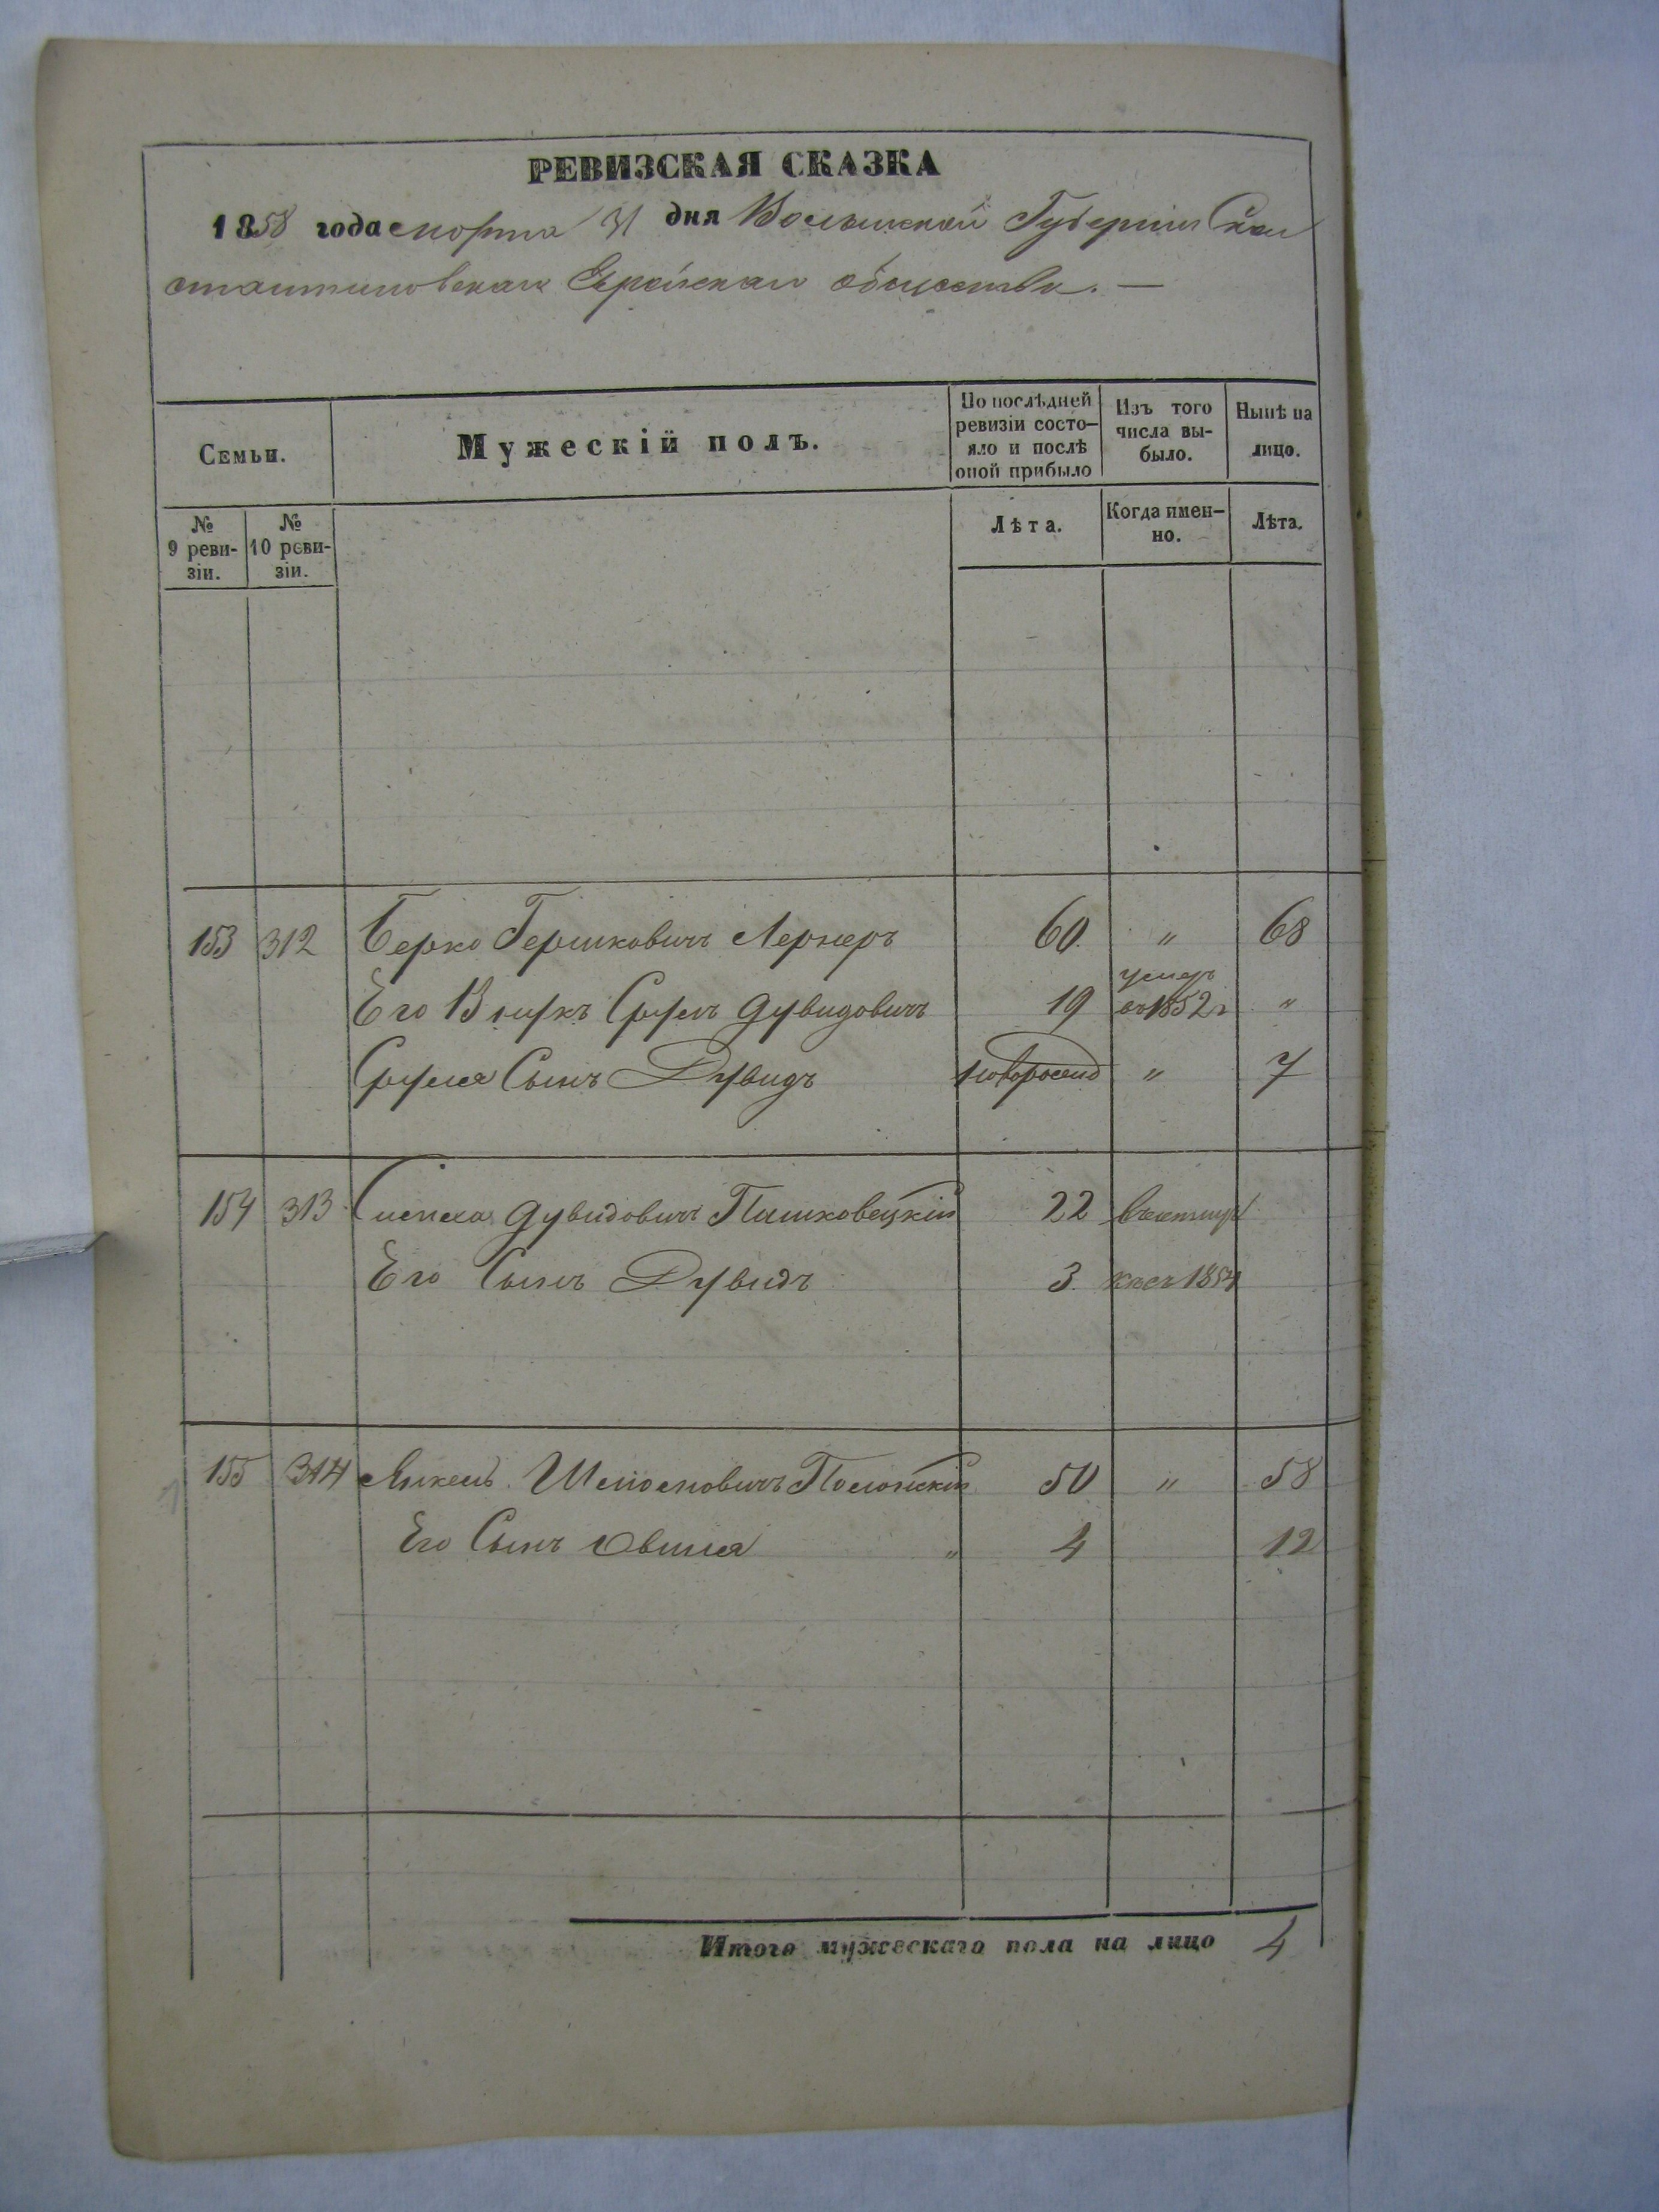 РЕВИЗСКАЯ СКАЗКА
1858 года марта 31 дня Волынской Губернии Скон
стантиновскаго Еврейскаго общества. —
Семьи.
Мужескій полъ.
По послѣдней ревизіи состо-
яло и послѣ
оной прибыло
Изъ того
числа вы-
было.
Нынѣ на
лицо.
№
9 реви-
зіи.
№
10 реви-
зіи.
Лѣта.
Когда имен-
но.
Лѣта.
153 312 Берко Гершковичъ Лернеръ 60 " 68
Его Внукъ Сруль Дувидовичъ 19 умеръ въ 1852 г "
Сруля Сынъ Дувидъ новорожд " 7
154 313 Дувидовичъ Пашковецкій 22
Его Сынъ Дувидъ 3 1854
155 314 Янкель Шлиомовичъ Полонскій 50 " 58
Его Сынъ Овшия " 4 12
Итого мужескаго пола на лицо 4